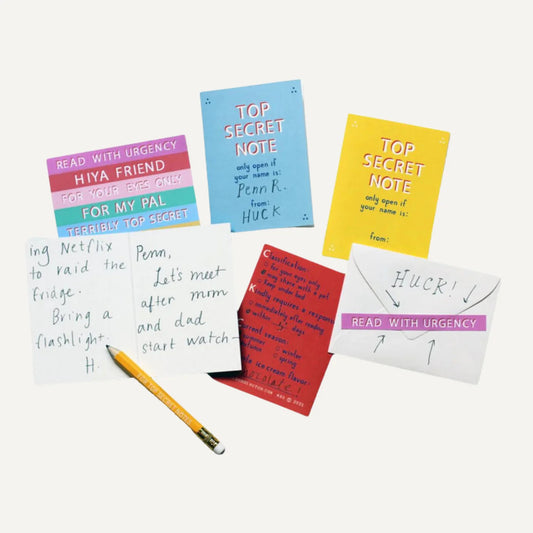 READ WITH URGENCY
HIYA FRIEND
FOR YOUR EYES ONLY
FOR MY PAL
TERRIBLY TOP SECRET
TOP
SECRET
NOTE
only open if
your name is:
Penn R.
from:
HUCK
TOP
SECRET
NOTE
only open if
your name is:
from:
ing Netflix
to raid the
fridge.
Bring a
flashlight.
H.
Penn,
Let's meet
after mom
and dad
start watch-
Classification:
for your eyes only
may share with a pal
keep under bed
Kindly requires a response
immediately after reading
within days
Current season:
summer winter
spring
ice cream flavor:
chocolate!
HUCK!
READ WITH URGENCY
TOP SECRET NOTE